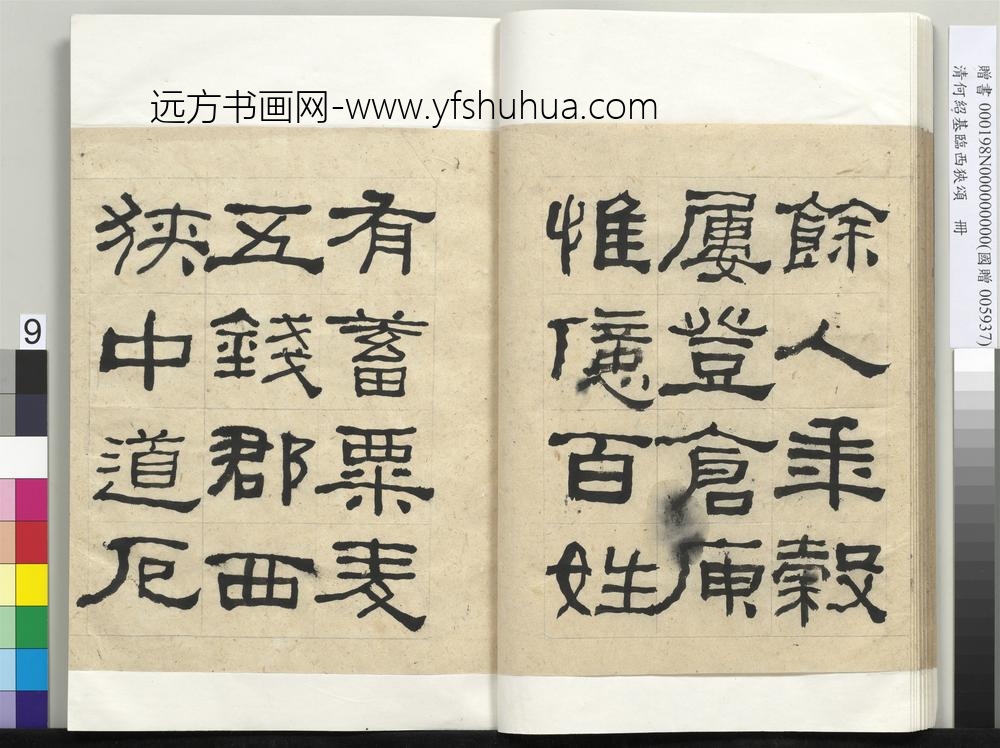 远方书画网-www.yfshuhua.com
贈書 000198N000000000(國贈 005937)
清何紹基臨西狹頌 冊
餘人年穀
屢登倉庾
惟億百姓
有蓄粟麦
五錢郡西
狹中道厄
9